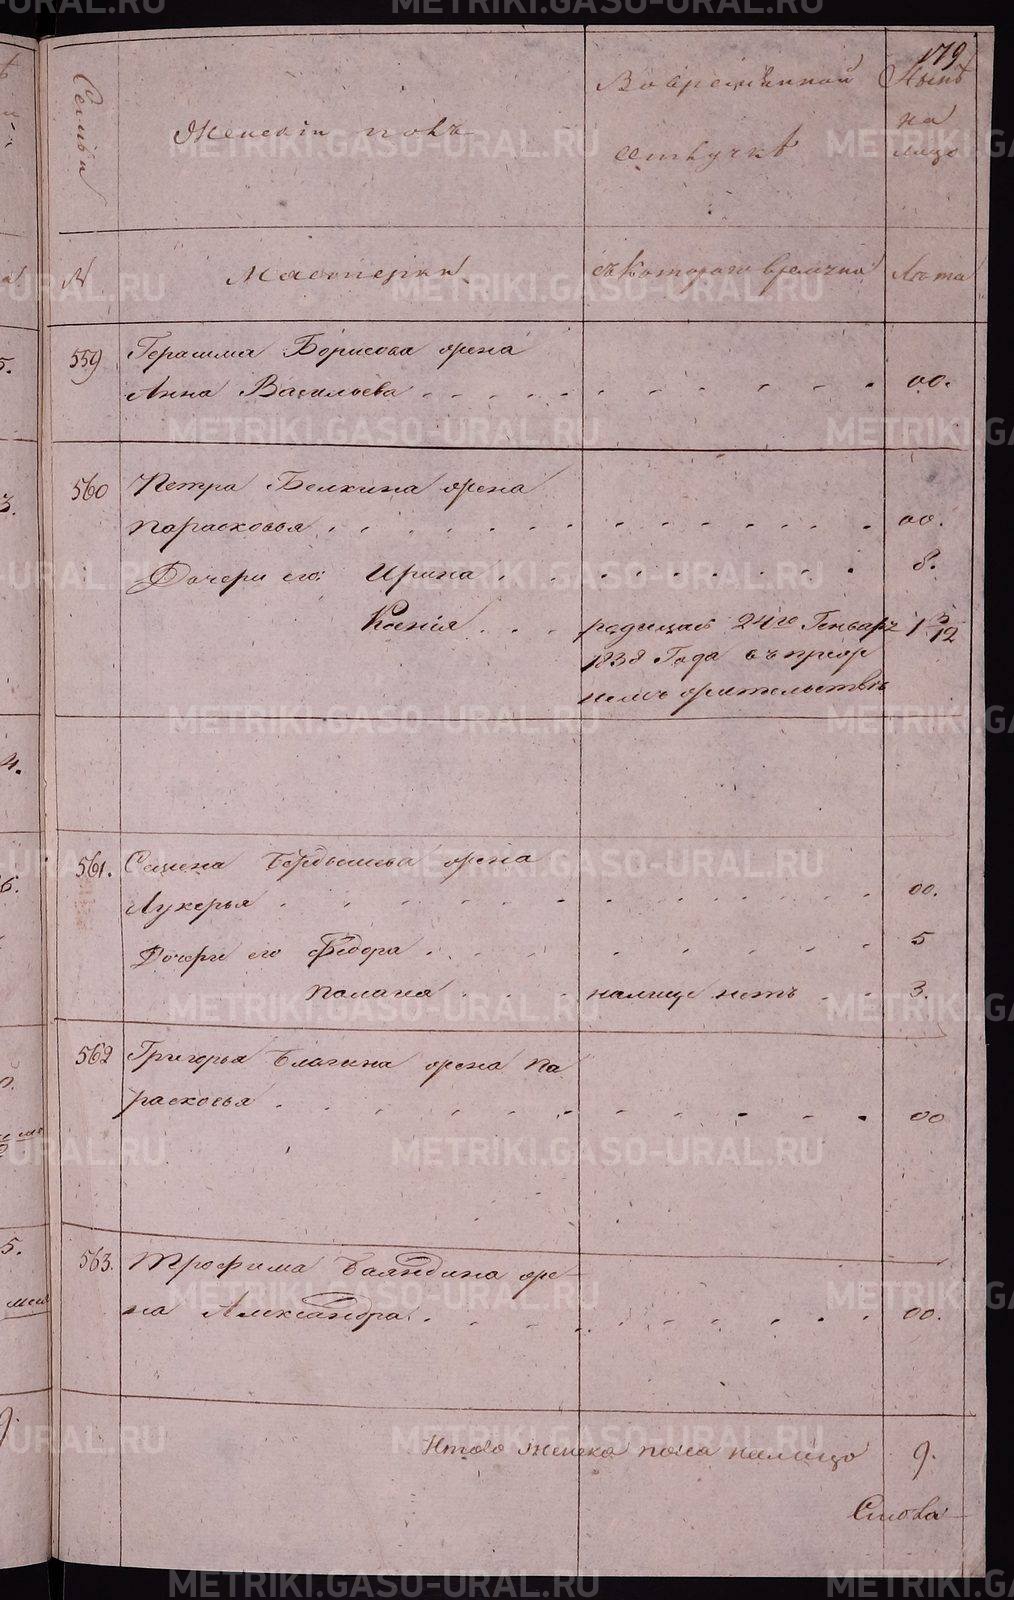 179
Семьи
Женскій полъ
Во временной
отлучкѣ
Нынѣ
на
лицо
№
Мастерки
съ Котораго времяни
Лѣта
559
Герасима Борисова жена
Анна Васильева
00.
560
Петра Белкина жена
Парасковья
00.
Дочери его: Ирина
8.
Ксенія
родилась 24го Генваря
1 3/12
1838 Года
жительствѣ
561.
Семена Бердышева жена
Лукерья
00.
Дочери его Федора
5
Палагея
налице нетъ
3.
562
Григорья Благина жена Па
расковья
00
563.
Трофима Баландина же-
на Александра
00.
Итого женска пола налицо
9.
Слова
METRIKI.GASO-URAL.RU